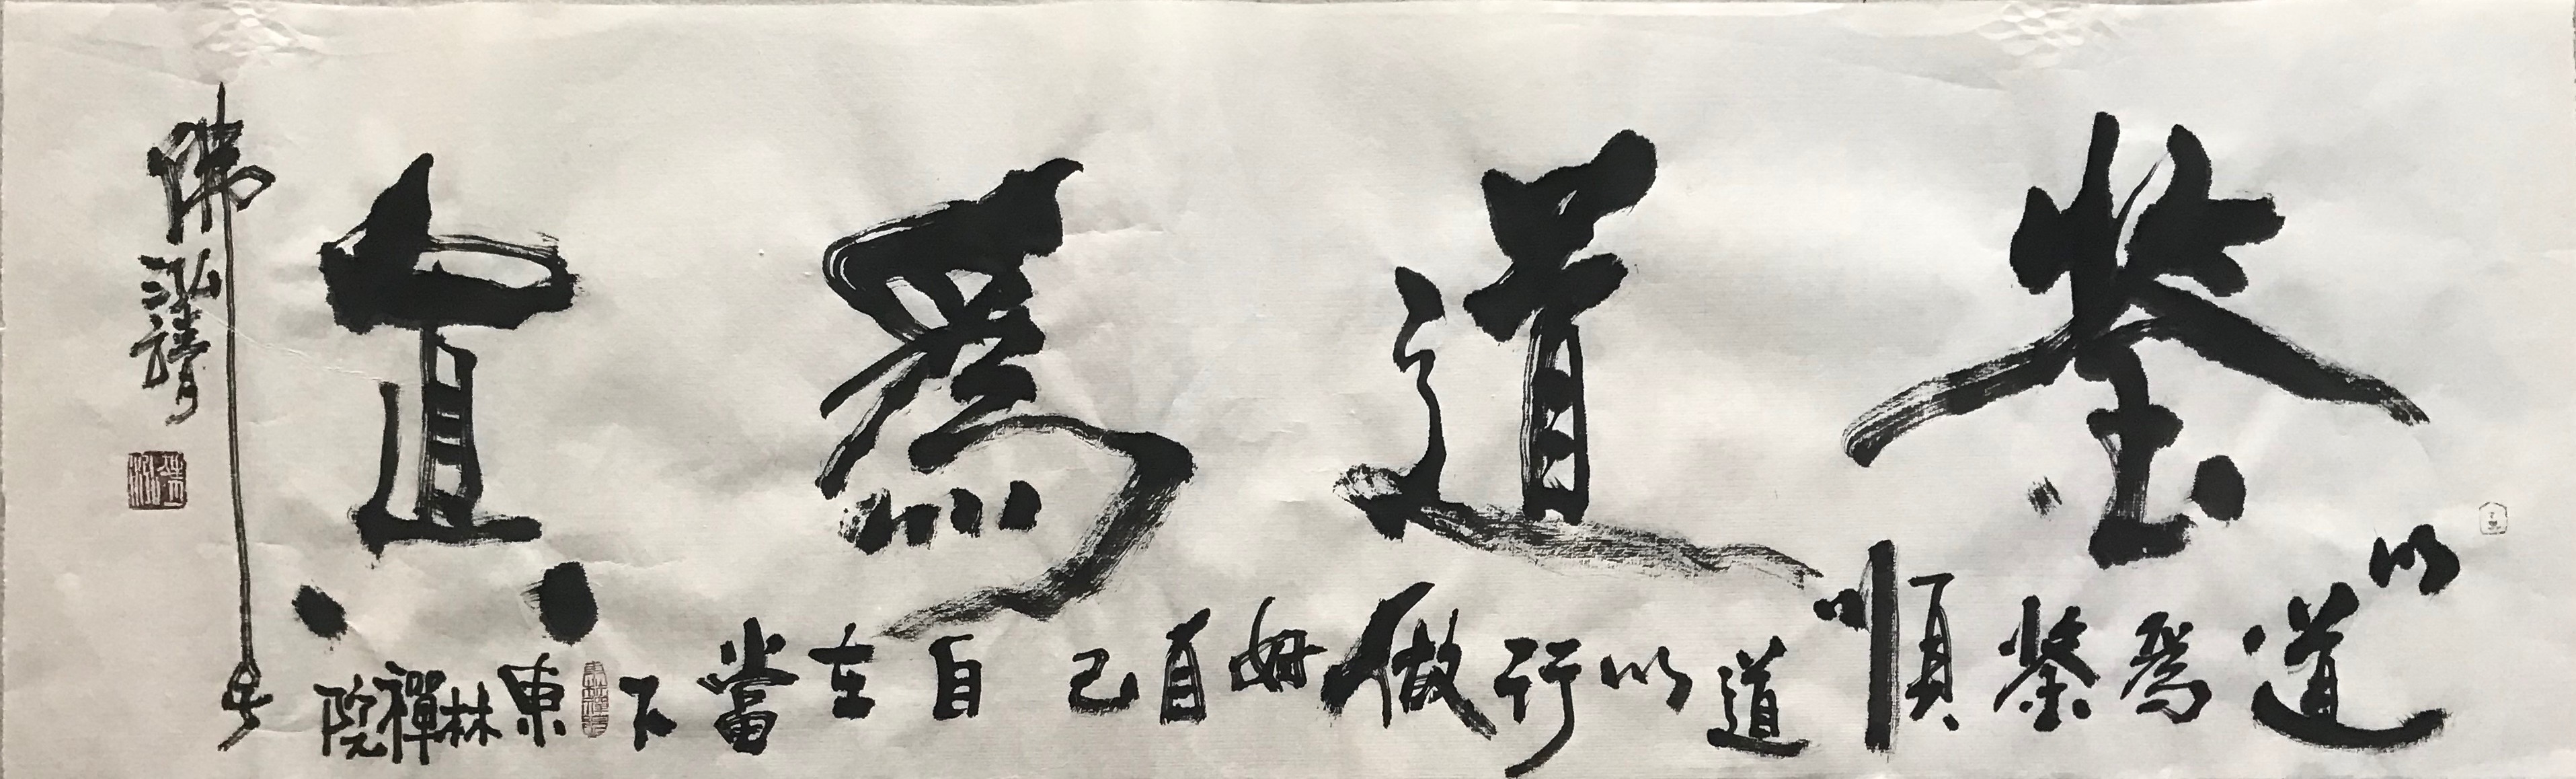 鉴道為真
以道為鉴順道以行做好自己自在當下
東林禪院
佛泓